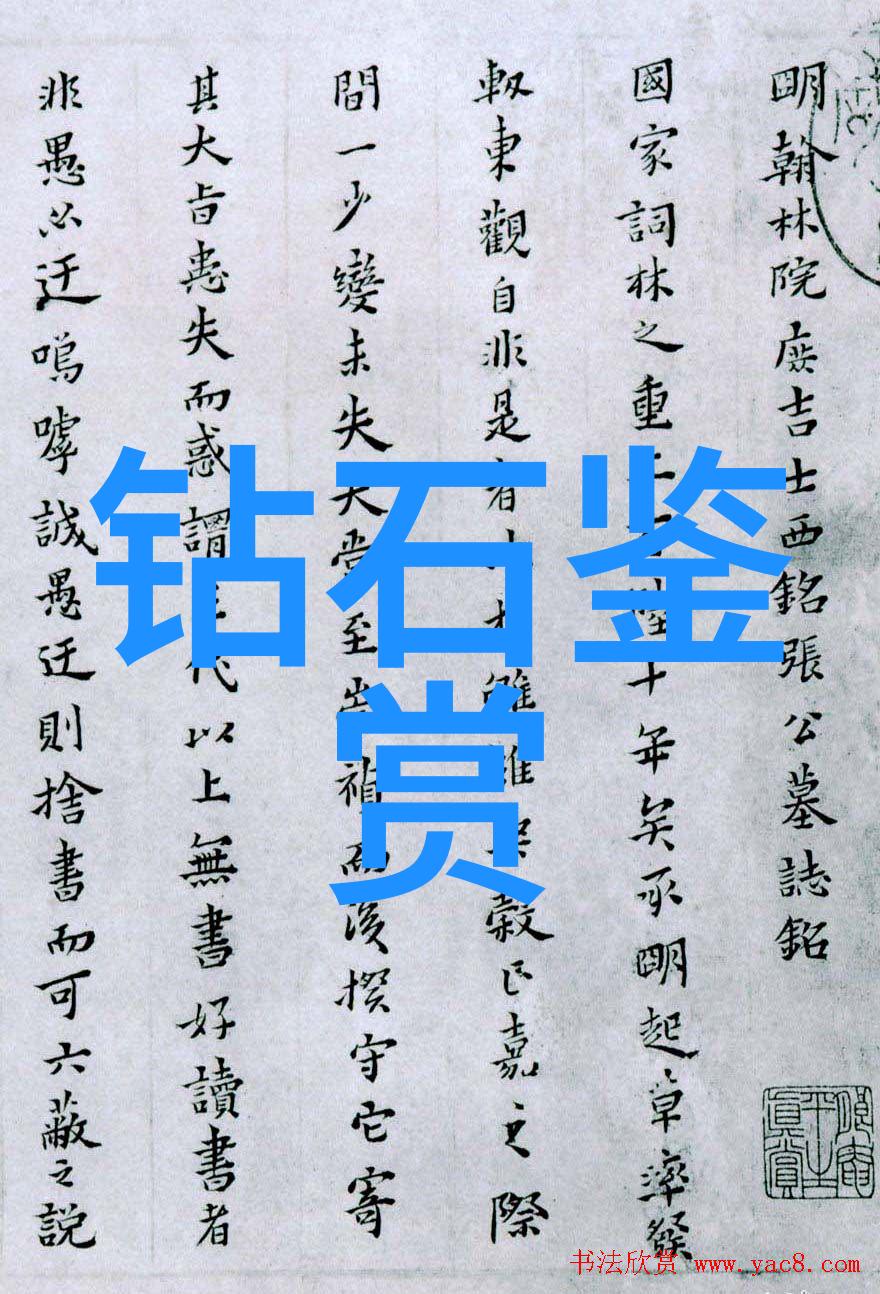 明翰林院庶吉士西銘張公墓誌銘
國家詞林之重二百陸十年矣承明起草率發
軔東觀自非是者
穀正嘉之際
間一少變未失
至出
而後揆守它寄
其大旨患失而惑謂三代以上無書好讀書者
非愚必迂嗚呼誠愚迂則捨書而可六蔽之説
钻石鉴
赏
書法欣赏 www.yac8.com